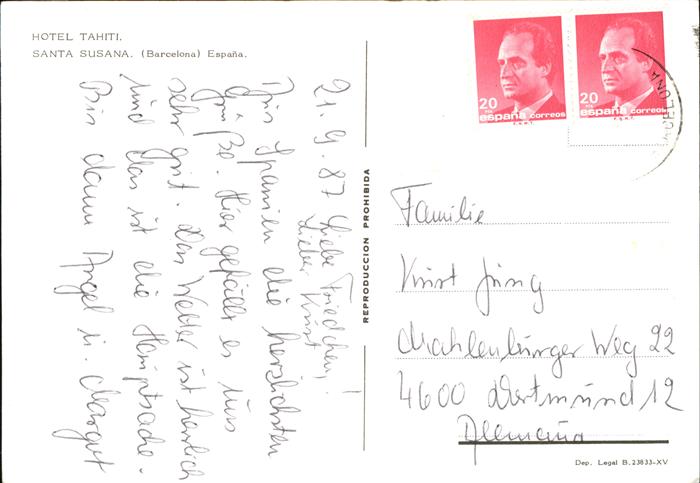 HOTEL TAHITI.
SANTA SUSANA. (Barcelona) España.
21.9.87 Liebe Friedchen,!
Lieber Kurt
Aus Spanien die herzlichsten
Grüße. Hier gefällt es uns
sehr gut. Das Wetter ist herrlich
und das ist die Hauptsache.
Bis dann Angel u. Margret
REPRODUCCION PROHIBIDA
20 PTA
españa correos
F.N.M.T.
20 PTA
españa correos
F.N.M.T.
BARCELONA
Familie
Kurt Jung
Mahlenburger Weg 22
4600 Dortmund 12
Alemaña
Dep. Legal B. 23833-XV